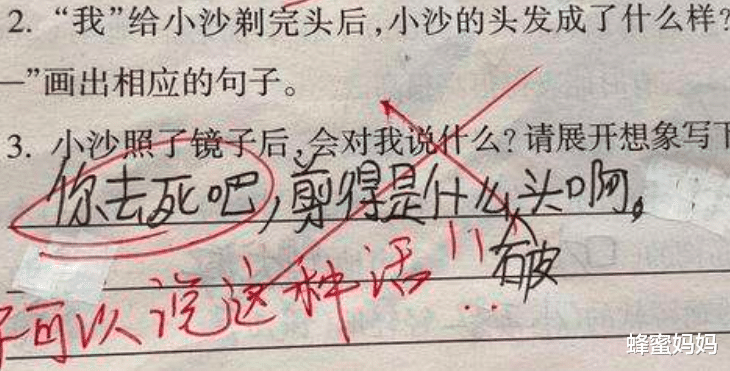 2. “我”给小沙剃完头后,小沙的头发成了什么样?
—”画出相应的句子。
3. 小沙照了镜子后,会对我说什么?请展开想象写下
你去死吧,剪得是什么头啊。
破
可以说这种话!!
蜂蜜妈妈